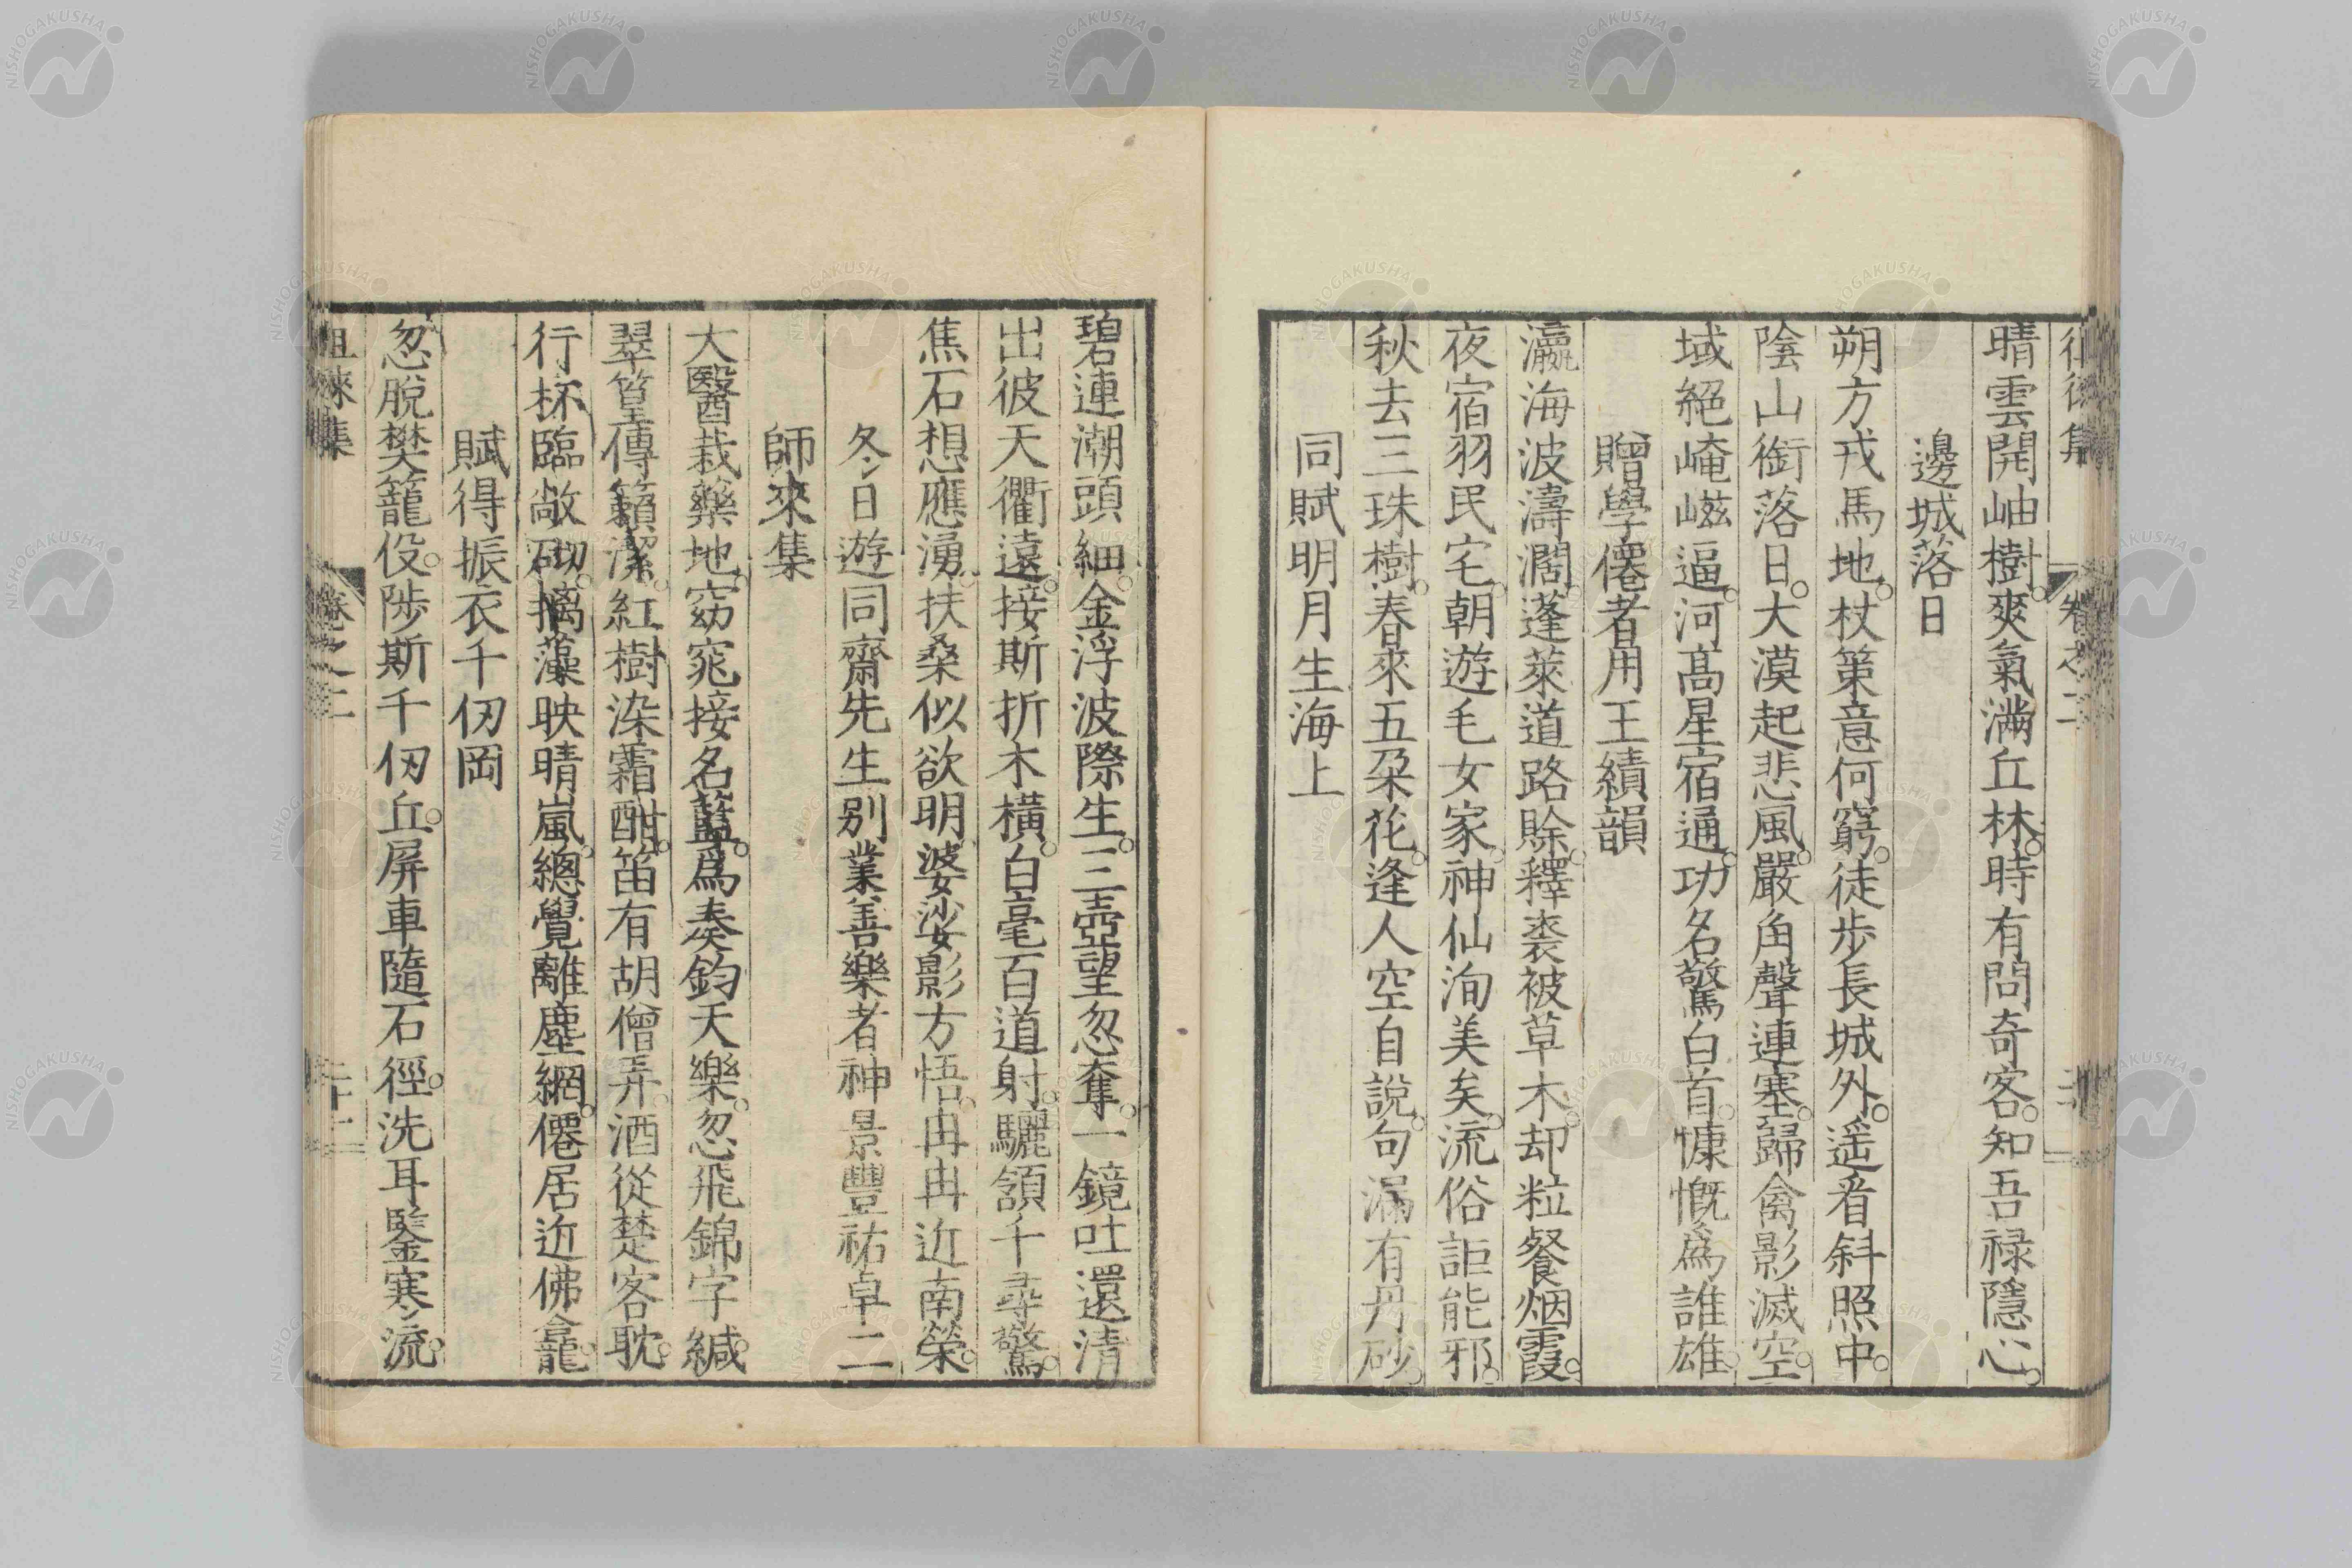 徂徠集 卷之二
晴雲開岫樹。爽氣滿丘林。時有問奇客。知吾祿隱心。
邊城落日
朔方戎馬地。杖策意何窮。徒步長城外。遥看斜照中。
陰山銜落日。大漠起悲風。嚴角聲連塞。歸禽影滅空。
域絕崦嵫逼。河高星宿通。功名驚白首。慷慨爲誰雄。
贈學僊者用王績韻
瀛海波濤濶。蓬萊道路賖。釋裘被草木。却粒餐烟霞。
夜宿羽民宅。朝遊毛女家。神仙洵美矣。流俗詎能邪。
秋去三珠樹。春來五朶花。逢人空自說。句漏有丹砂。
同賦明月生海上
碧連潮頭細。金浮波際生。三壺望忽奪。一鏡吐還清
出彼天衢遠。接斯折木橫。白毫百道射。驪頷千尋驚。
焦石想應湧。扶桑似欲明。婆娑影方悟。冉冉近南榮。
冬日遊同齋先生別業善樂者神景豐祐卓二
師來集
大醫栽藥地。窈窕接名藍。爲奏鈞天樂。忽飛錦字緘。
翠篁傳籟潔。紅樹染霜酣。笛有胡僧弄。酒從楚客耽。
行杯臨敞砌。摛藻映晴嵐。總覺離塵網。僊居近佛龕。
賦得振衣千仞岡
忽脫樊籠役。陟斯千仞丘。屏車隨石徑。洗耳鑿寒流。
徂徠集 卷之二 二十二